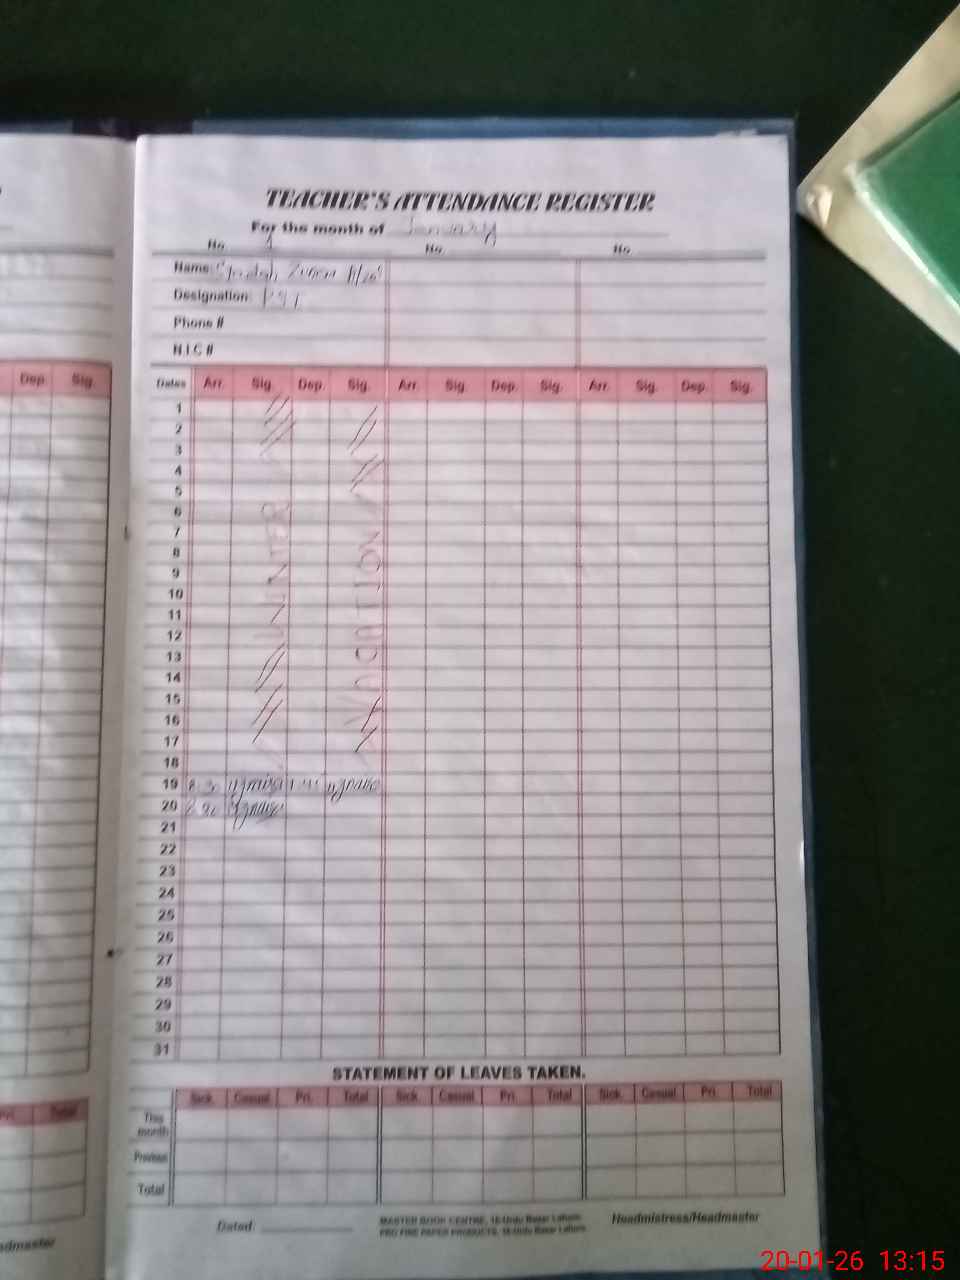 TEACHER'S ATTENDANCE REGISTER
For the month of January
No. 1 No. No.
Name:
Designation: PST
Phone #
N.I.C #
Dep. Sig.
Dates Arr. Sig. Dep. Sig. Arr. Sig. Dep. Sig. Arr. Sig. Dep. Sig.
1
2
3
4
5
6
7
8
9
10
11
12
13
14
15
16
17
18
WINTER
VACATION
19 8:30
20
21
22
23
24
25
26
27
28
29
30
31
STATEMENT OF LEAVES TAKEN.
Pri. Total
Sick. Casual Pri. Total Sick. Casual Pri. Total Sick. Casual Pri. Total
This month
Previous
Total
Dated:
MASTER BOOK CENTRE, 16-Urdu Bazar Lahore.
PRO FINE PAPER PRODUCTS, 16-Urdu Bazar Lahore.
Headmistress/Headmaster
eadmaster
20-01-26 13:15